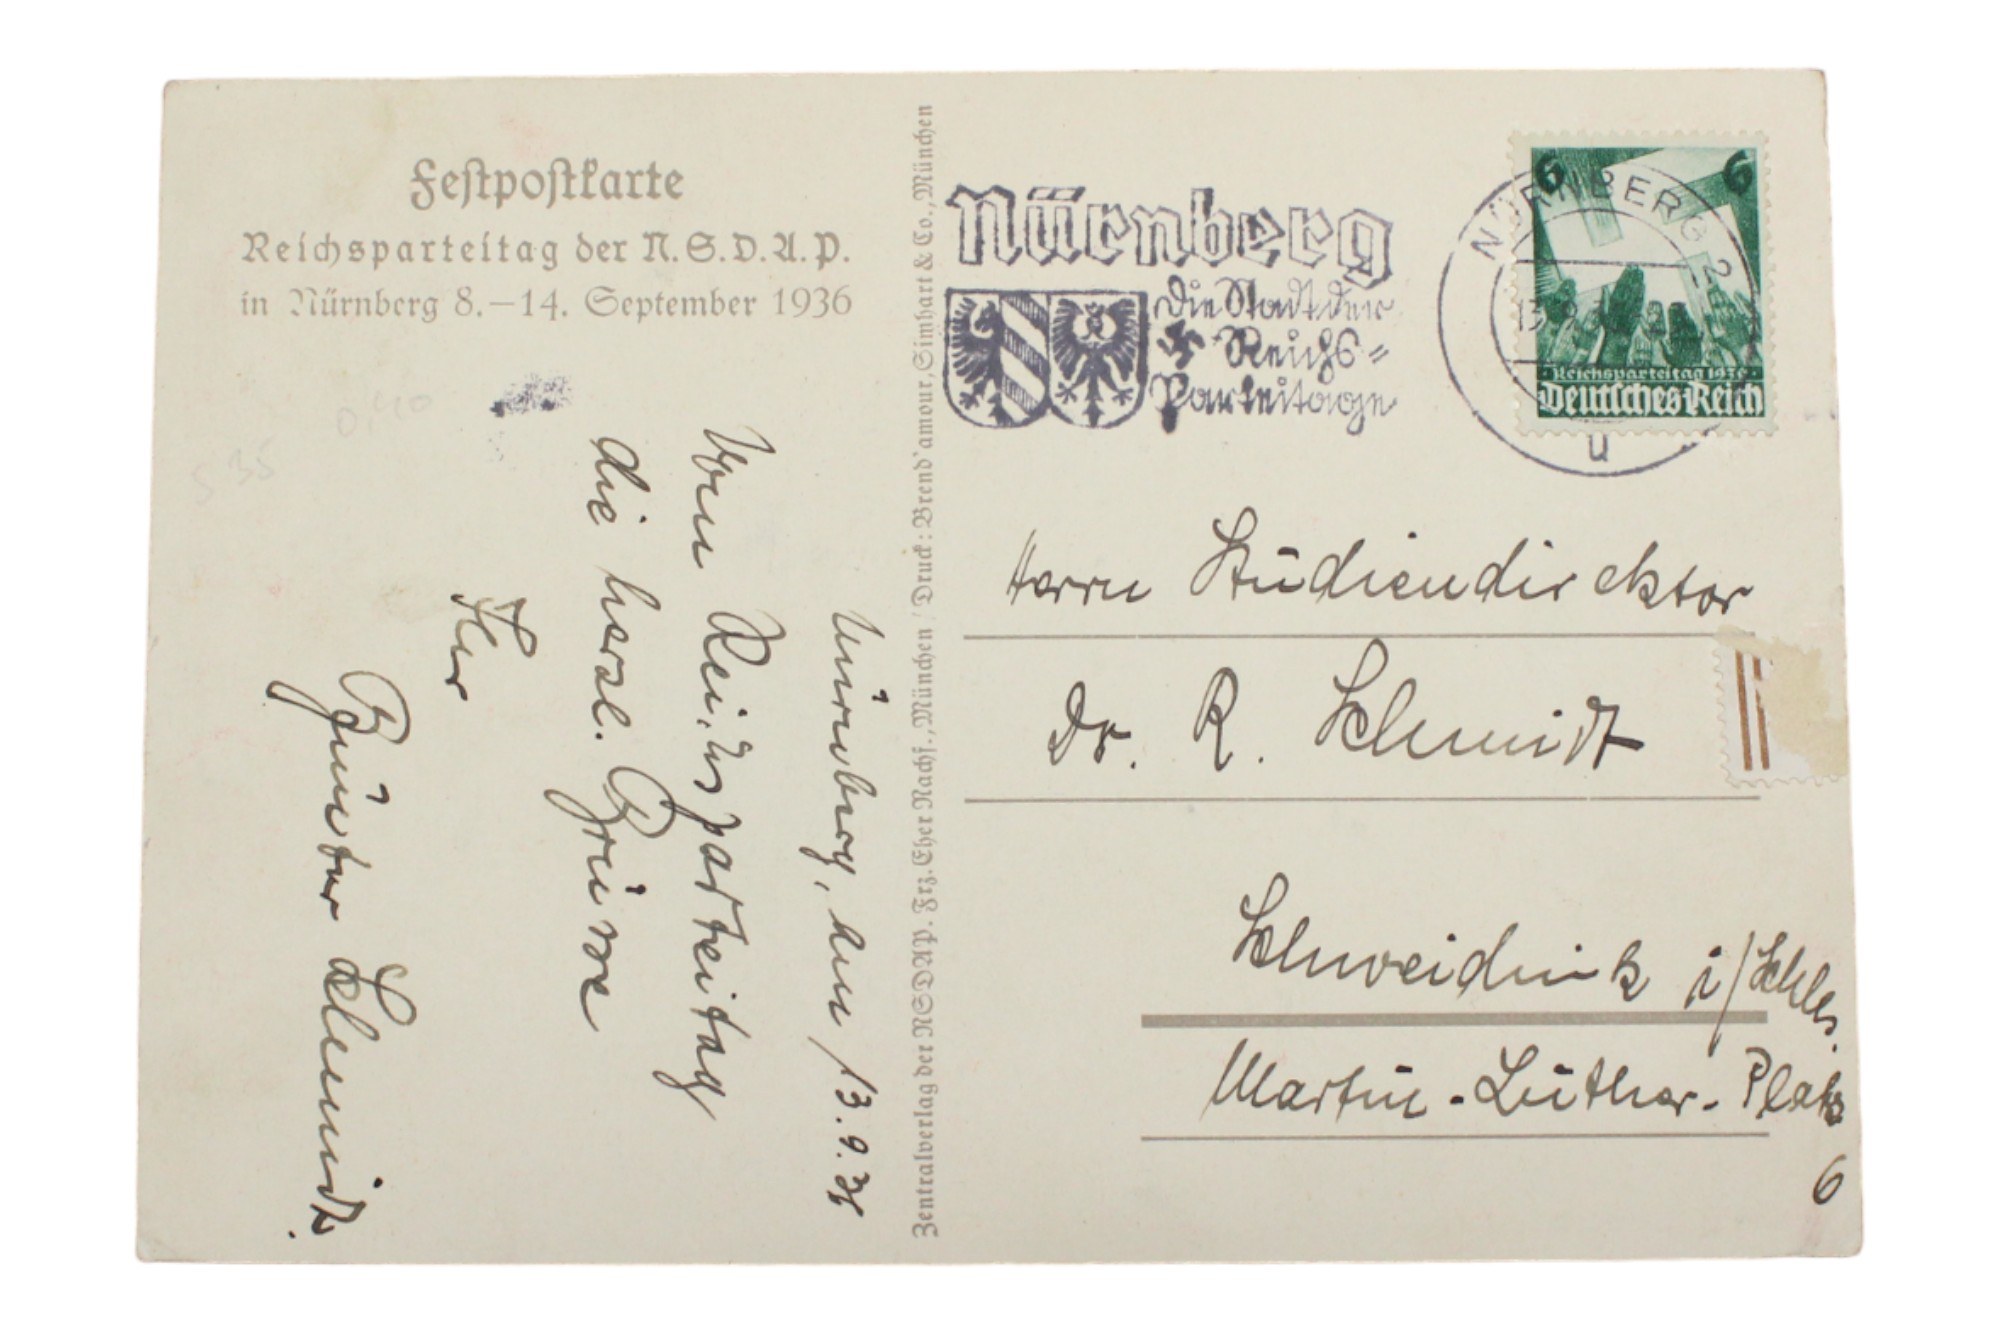 Festpostkarte
Reichsparteitag der N.S.D.A.P.
in Nürnberg 8.–14. September 1936
Nürnberg, den 13.9.36
Vom Reichsparteitag
die herzl. Grüsse
Ihr
Günter Schmidt.
Zentralverlag der NSDAP. Frz. Eher Nachf., München / Druck: Brend'amour, Simhart & Co., München
Nürnberg
Die Stadt der
Reichs=
Parteitage
NÜRNBERG 2
13.9.
u
6 6
Reichsparteitag 1936
Deutsches Reich
Herrn Studiendirektor
Dr. R. Schmidt
Schweidnitz i/Schles.
Martin-Luther-Platz
6